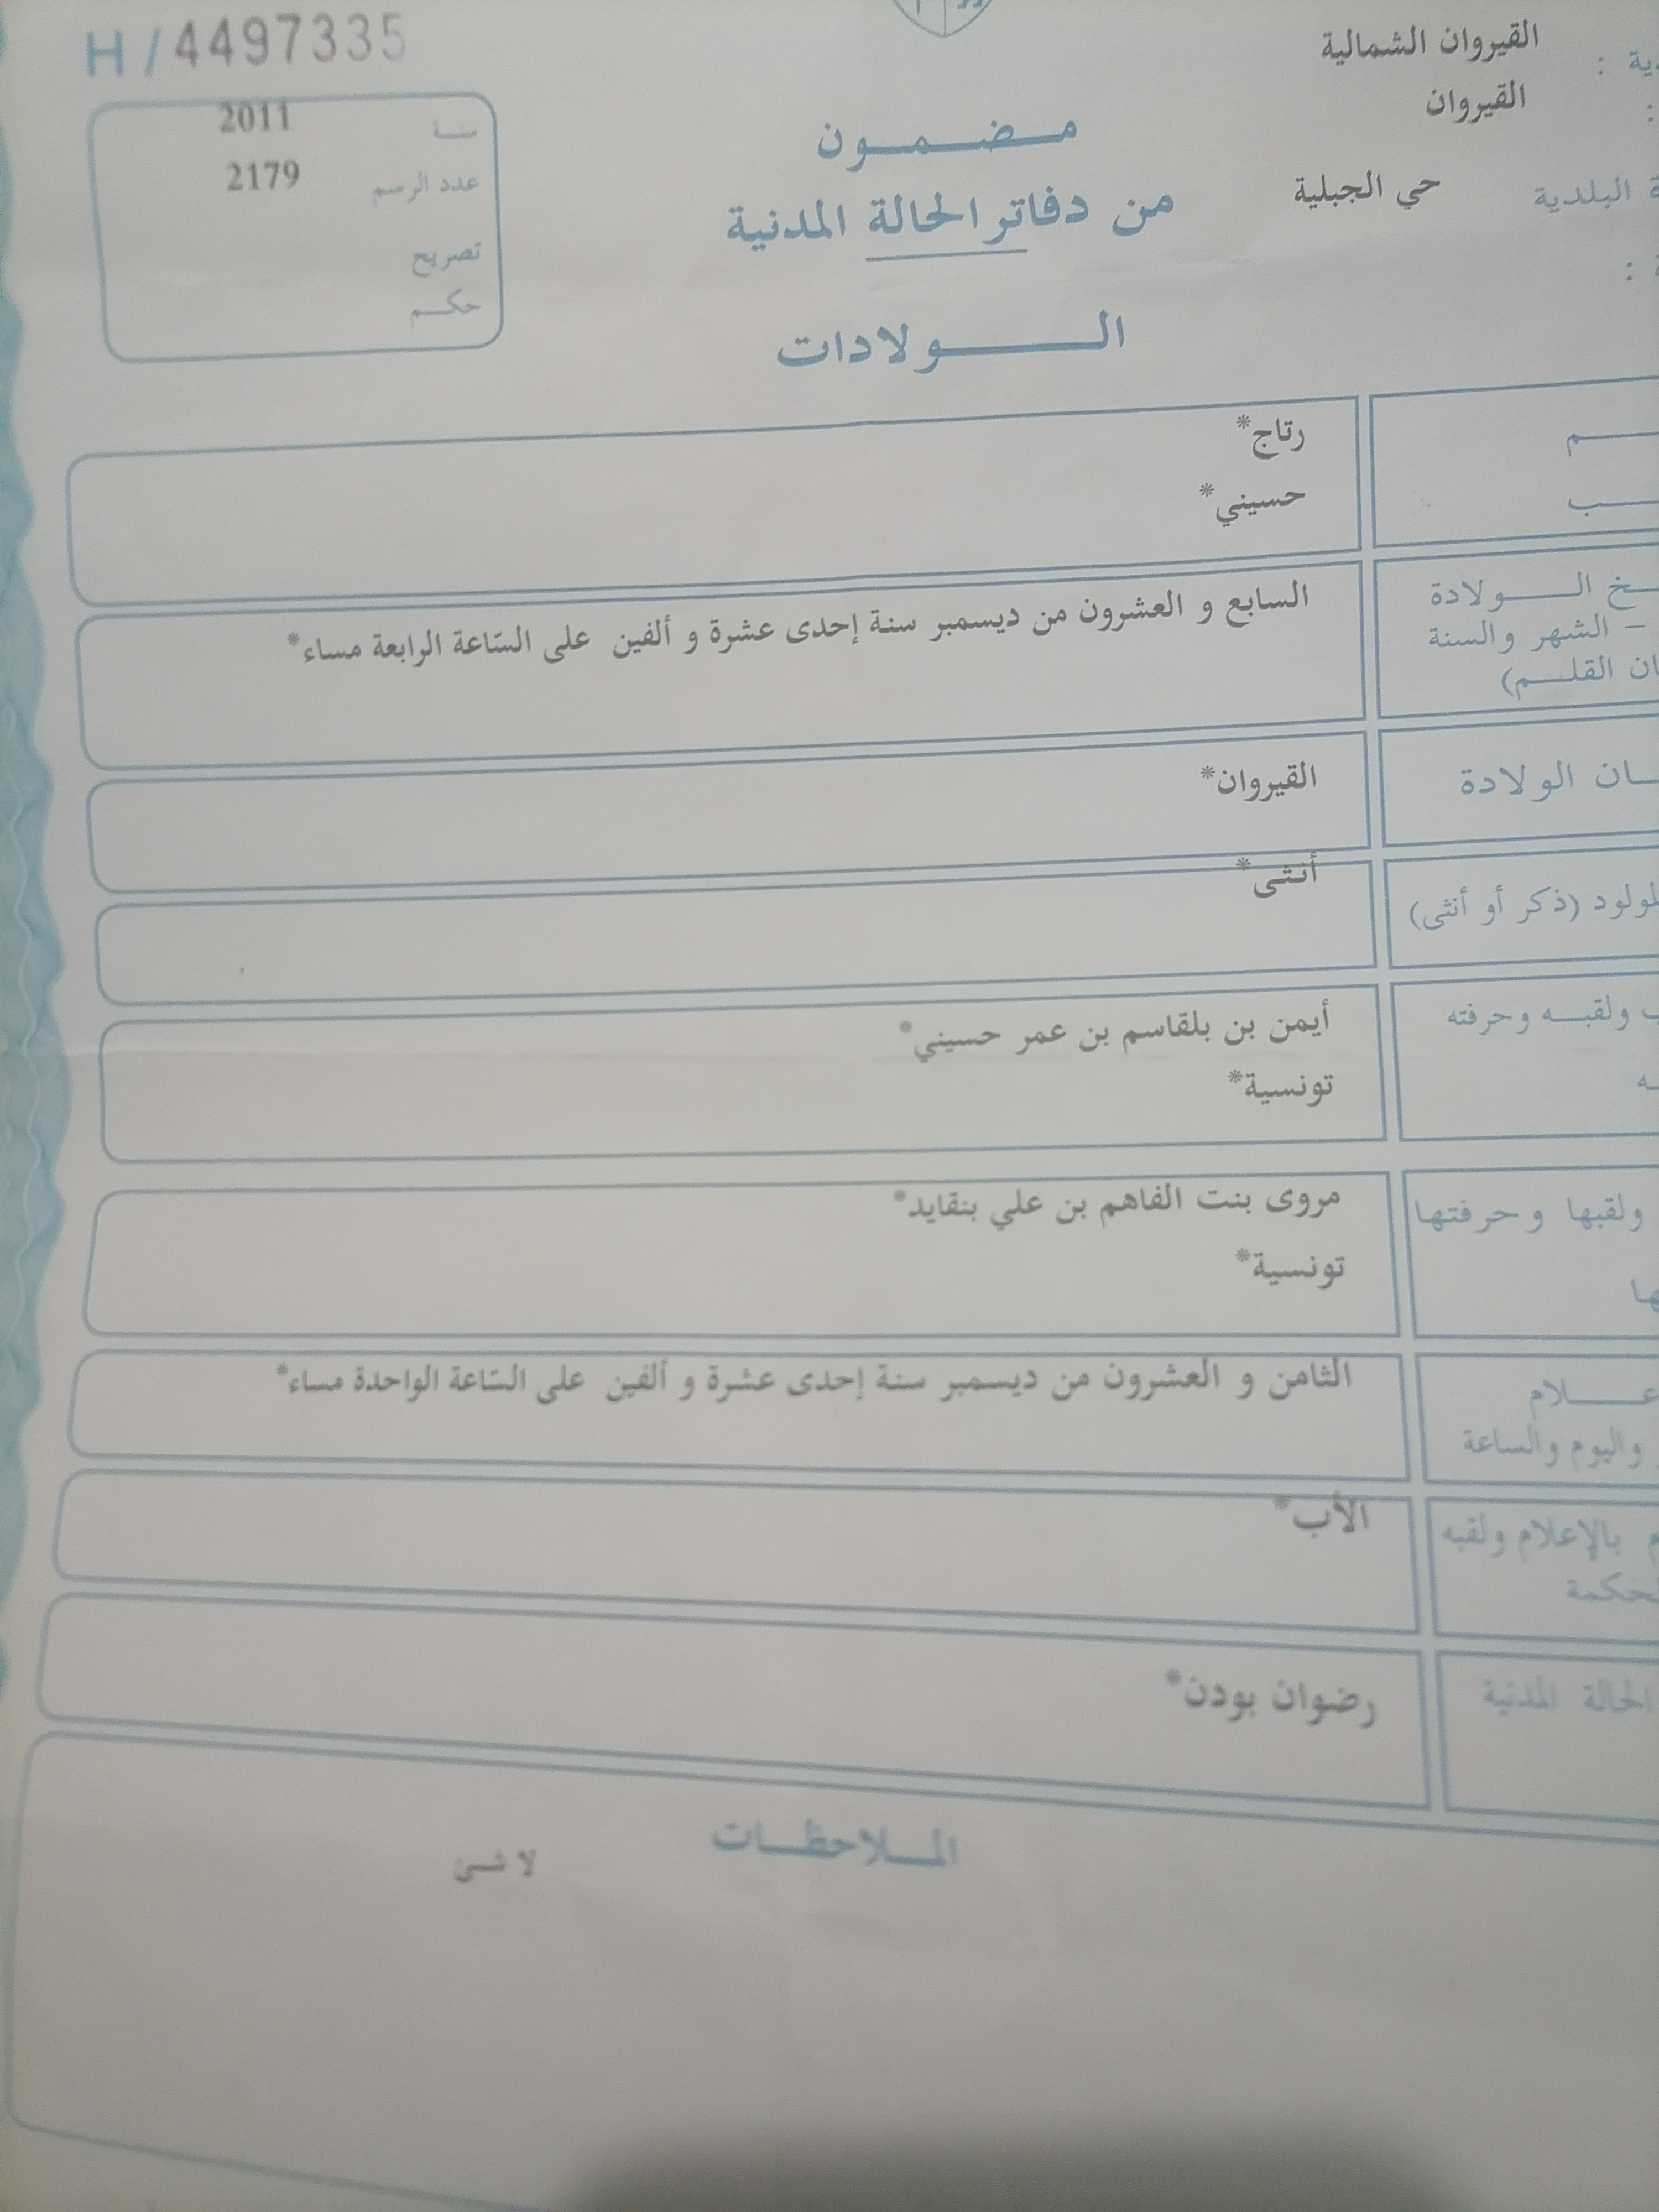 H / 4497335
القيروان الشمالية
القيروان
البلدية حي الجبلية
سنة 2011
عدد الرسم 2179
تصريح
حكم
مضمون
من دفاتر الحالة المدنية
الولادات
رتاج*
حسيني*
الولادة السابع و العشرون من ديسمبر سنة إحدى عشرة و ألفين على السّاعة الرابعة مساء*
– الشهر والسنة
القلم)
الولادة القيروان*
(ذكر أو أنثى) أنثى*
ولقبه وحرفته أيمن بن بلقاسم بن عمر حسيني*
تونسية*
ولقبها وحرفتها مروى بنت الفاهم بن علي بنقايد*
تونسية*
الثامن و العشرون من ديسمبر سنة إحدى عشرة و ألفين على السّاعة الواحدة مساء*
واليوم والساعة
بالإعلام ولقبه الأب*
الحالة المدنية رضوان بودن*
الملاحظات
لا شئ